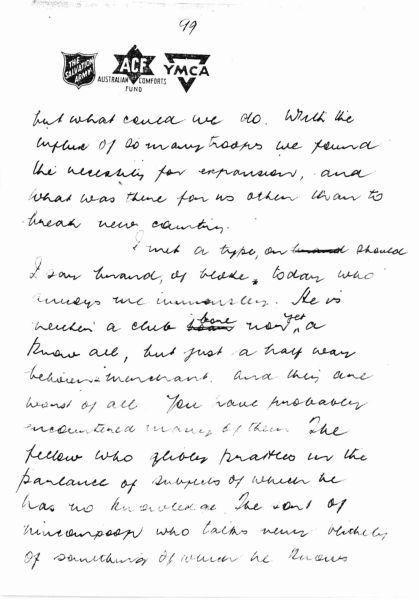 99
THE SALVATION ARMY
ACF
AUSTRALIAN COMFORTS FUND
YMCA
but what could we do. With the
influx of so many troops we found
the necessity for expansion, and
what was there for us other than to
break new country.
I met a type, or brand should
I say brand, of bloke, today who
annoys me immensely. He is
neither a club bore nor yet a
know all, but just a half way
behaviour merchant. And they are
worst of all. You have probably
encountered many of them. The
fellow who glibly prattles in the
parlance of subjects of which he
has no knowledge. The sort of
nincompoop who talks very blithely
of something of which he knows